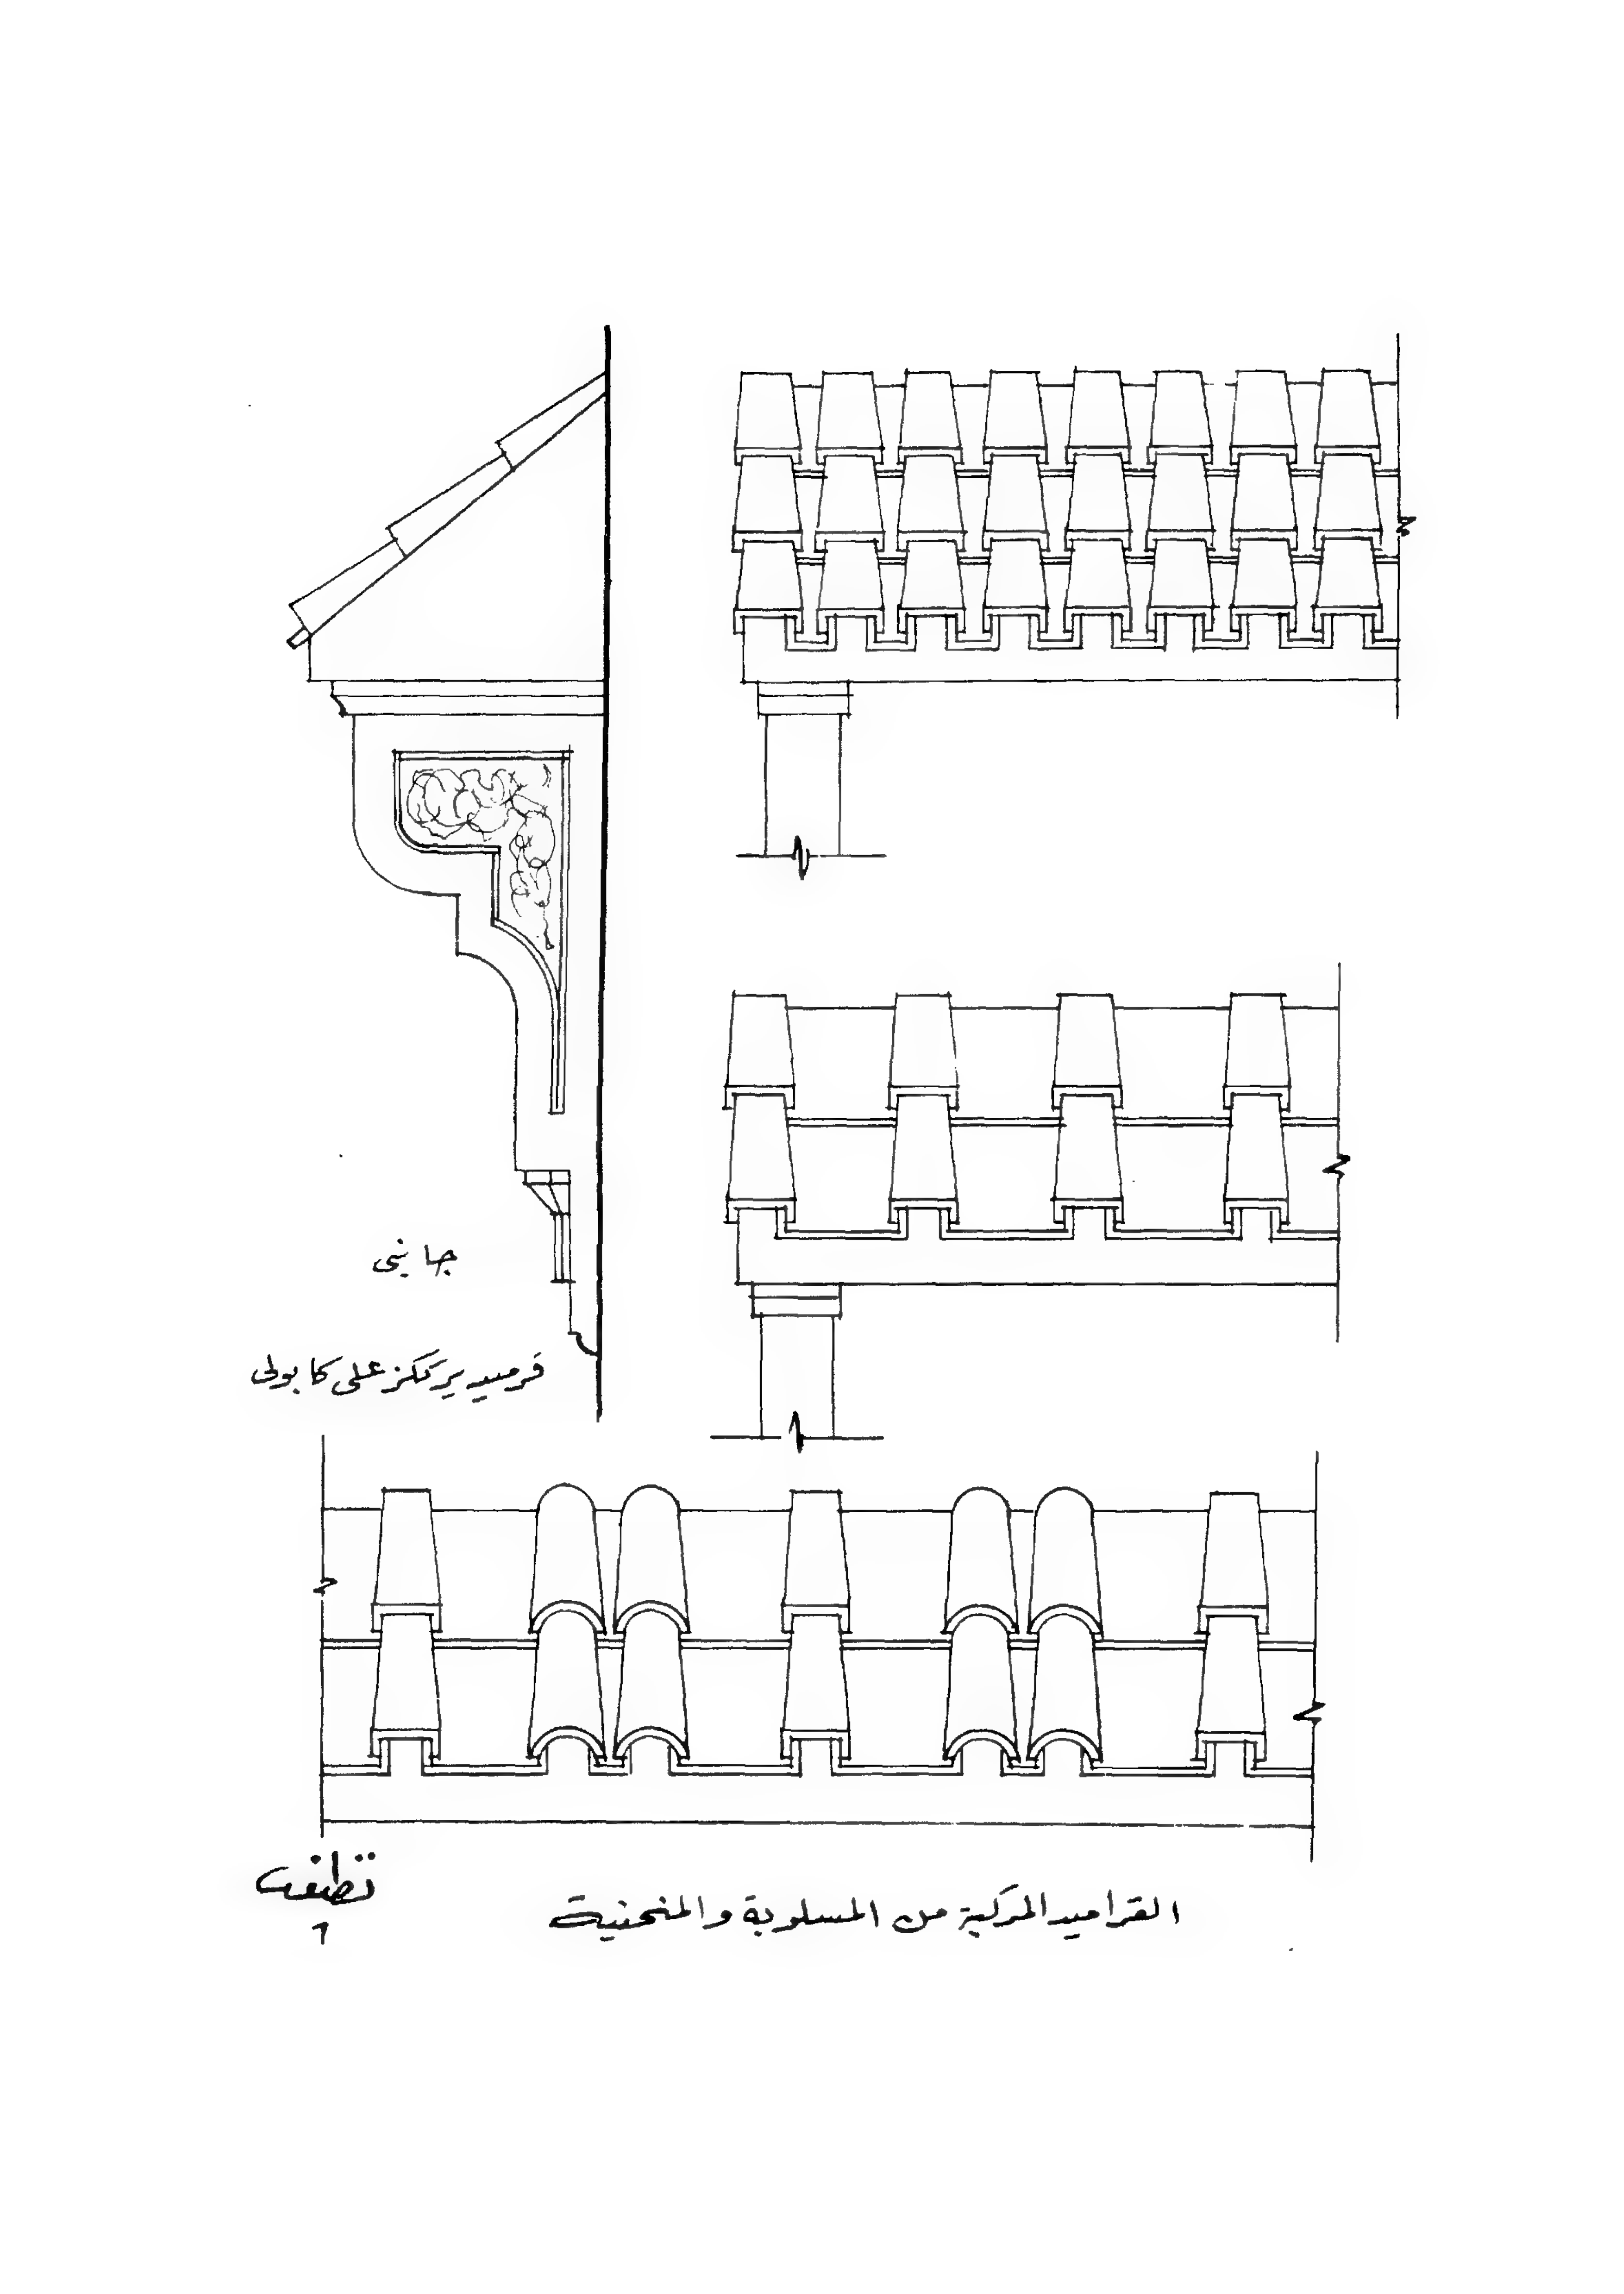 جانبى
قرميد يرتكز على كابولى
القراميد المركبة من المسلوبة والمنحنية
٦